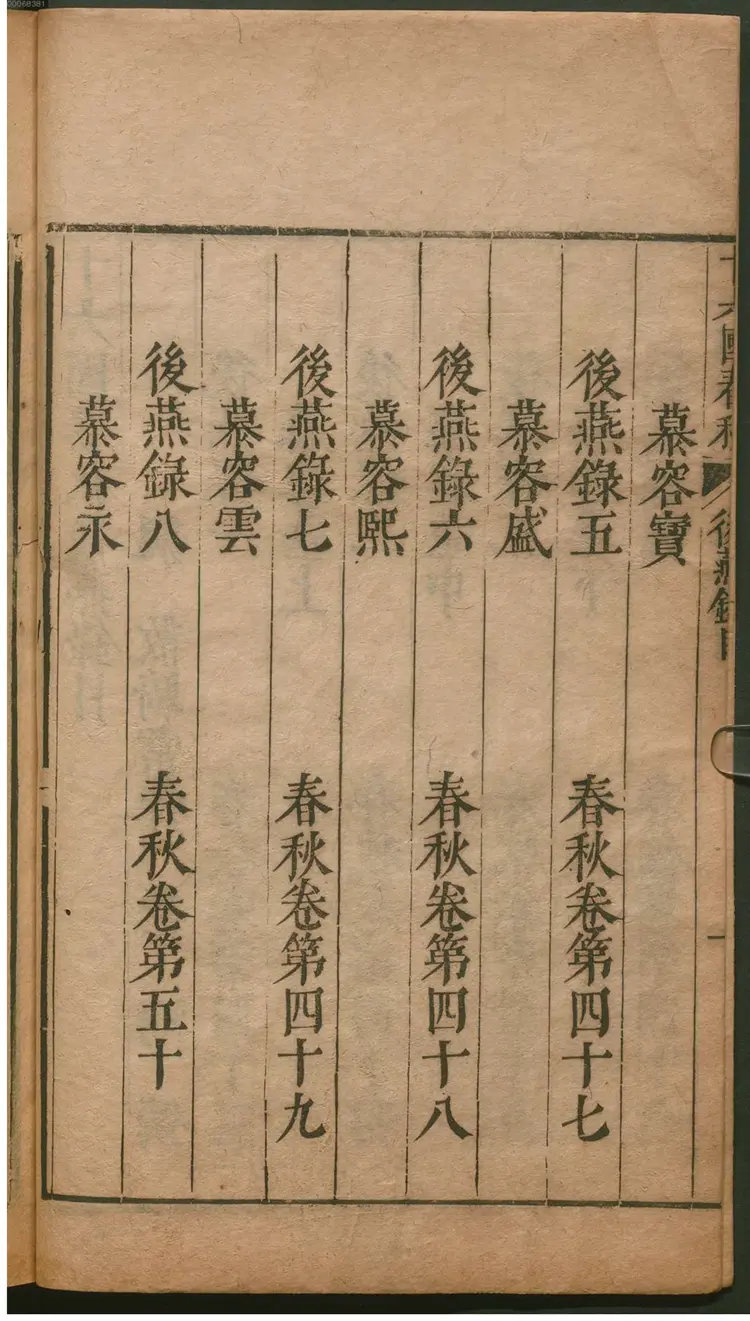 00068381
十六國春秋 後燕錄目
慕容寶
後燕錄五 春秋卷第四十七
慕容盛
後燕錄六 春秋卷第四十八
慕容熙
後燕錄七 春秋卷第四十九
慕容雲
後燕錄八 春秋卷第五十
慕容永
一